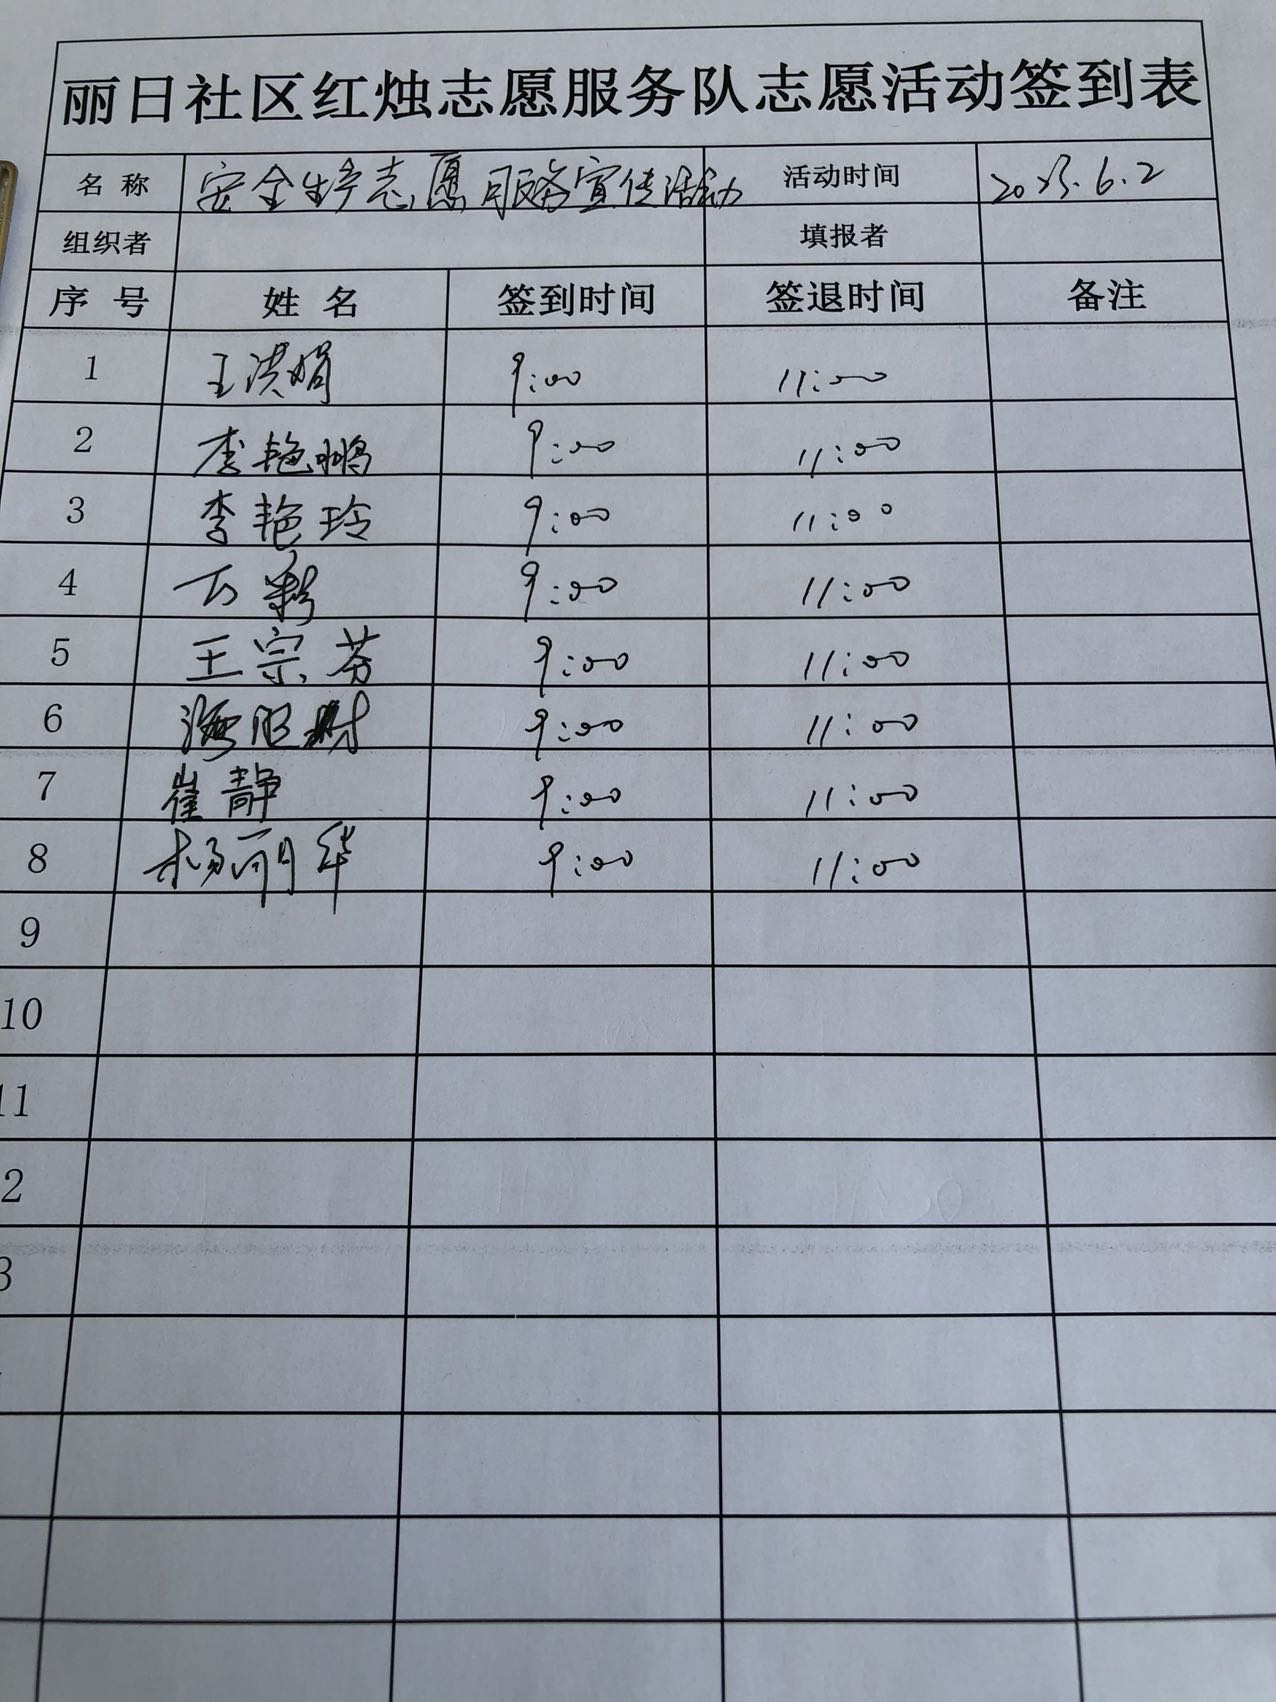 丽日社区红烛志愿服务队志愿活动签到表
名 称 安全生产志愿服务宣传活动 活动时间 2023.6.2
组织者 填报者
序 号 姓 名 签到时间 签退时间 备注
1 王洪娟 9:00 11:00
2 李艳鹏 9:00 11:00
3 李艳玲 9:00 11:00
4 9:00 11:00
5 王宗芬 9:00 11:00
6 9:00 11:00
7 崔静 9:00 11:00
8 杨丽华 9:00 11:00
9
10
11
2
3